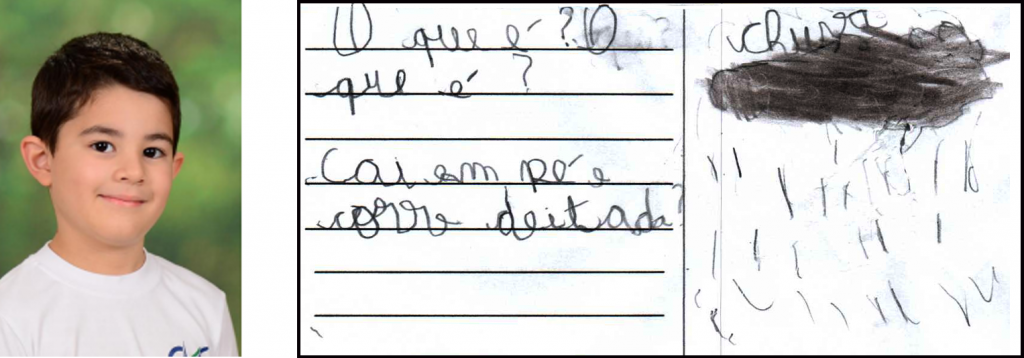 O que é? O
que é?
Cai em pé e
corre deitada?
chuva